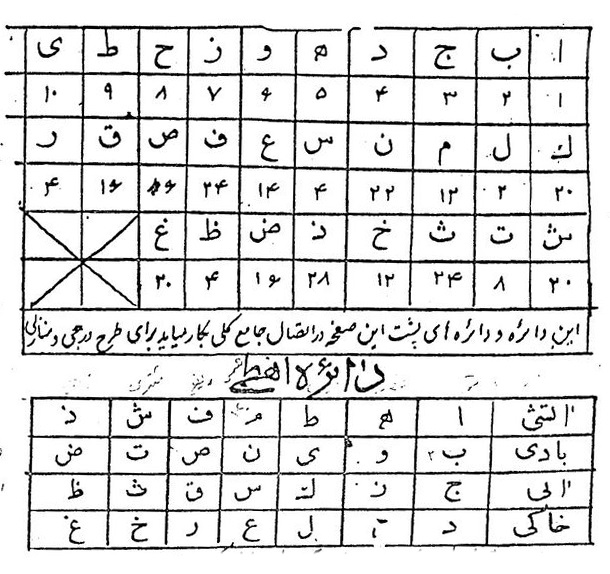 ا ب ج د ه و ز ح ط ی
۱ ۲ ۳ ۴ ۵ ۶ ۷ ۸ ۹ ۱۰
ك ل م ن س ع ف ص ق ر
۲۰ ۲ ۱۲ ۲۲ ۴ ۱۴ ۲۴ ۱۶ ۴
ش ت ث خ ذ ض ظ غ
۲۰ ۸ ۲۴ ۱۲ ۲۸ ۱۶ ۴ ۲۰
این دائره و دائره ای پشت این صفحه در اتصال جامع کلی بکار میاید برای طرح درجی و منازلی
دائره اهطمی
اتشی ا ه ط م ف ش ذ
بادی ب و ی ن ص ت ض
ابی ج ز ك س ق ث ظ
خاکی د ح ل ع ر خ غ